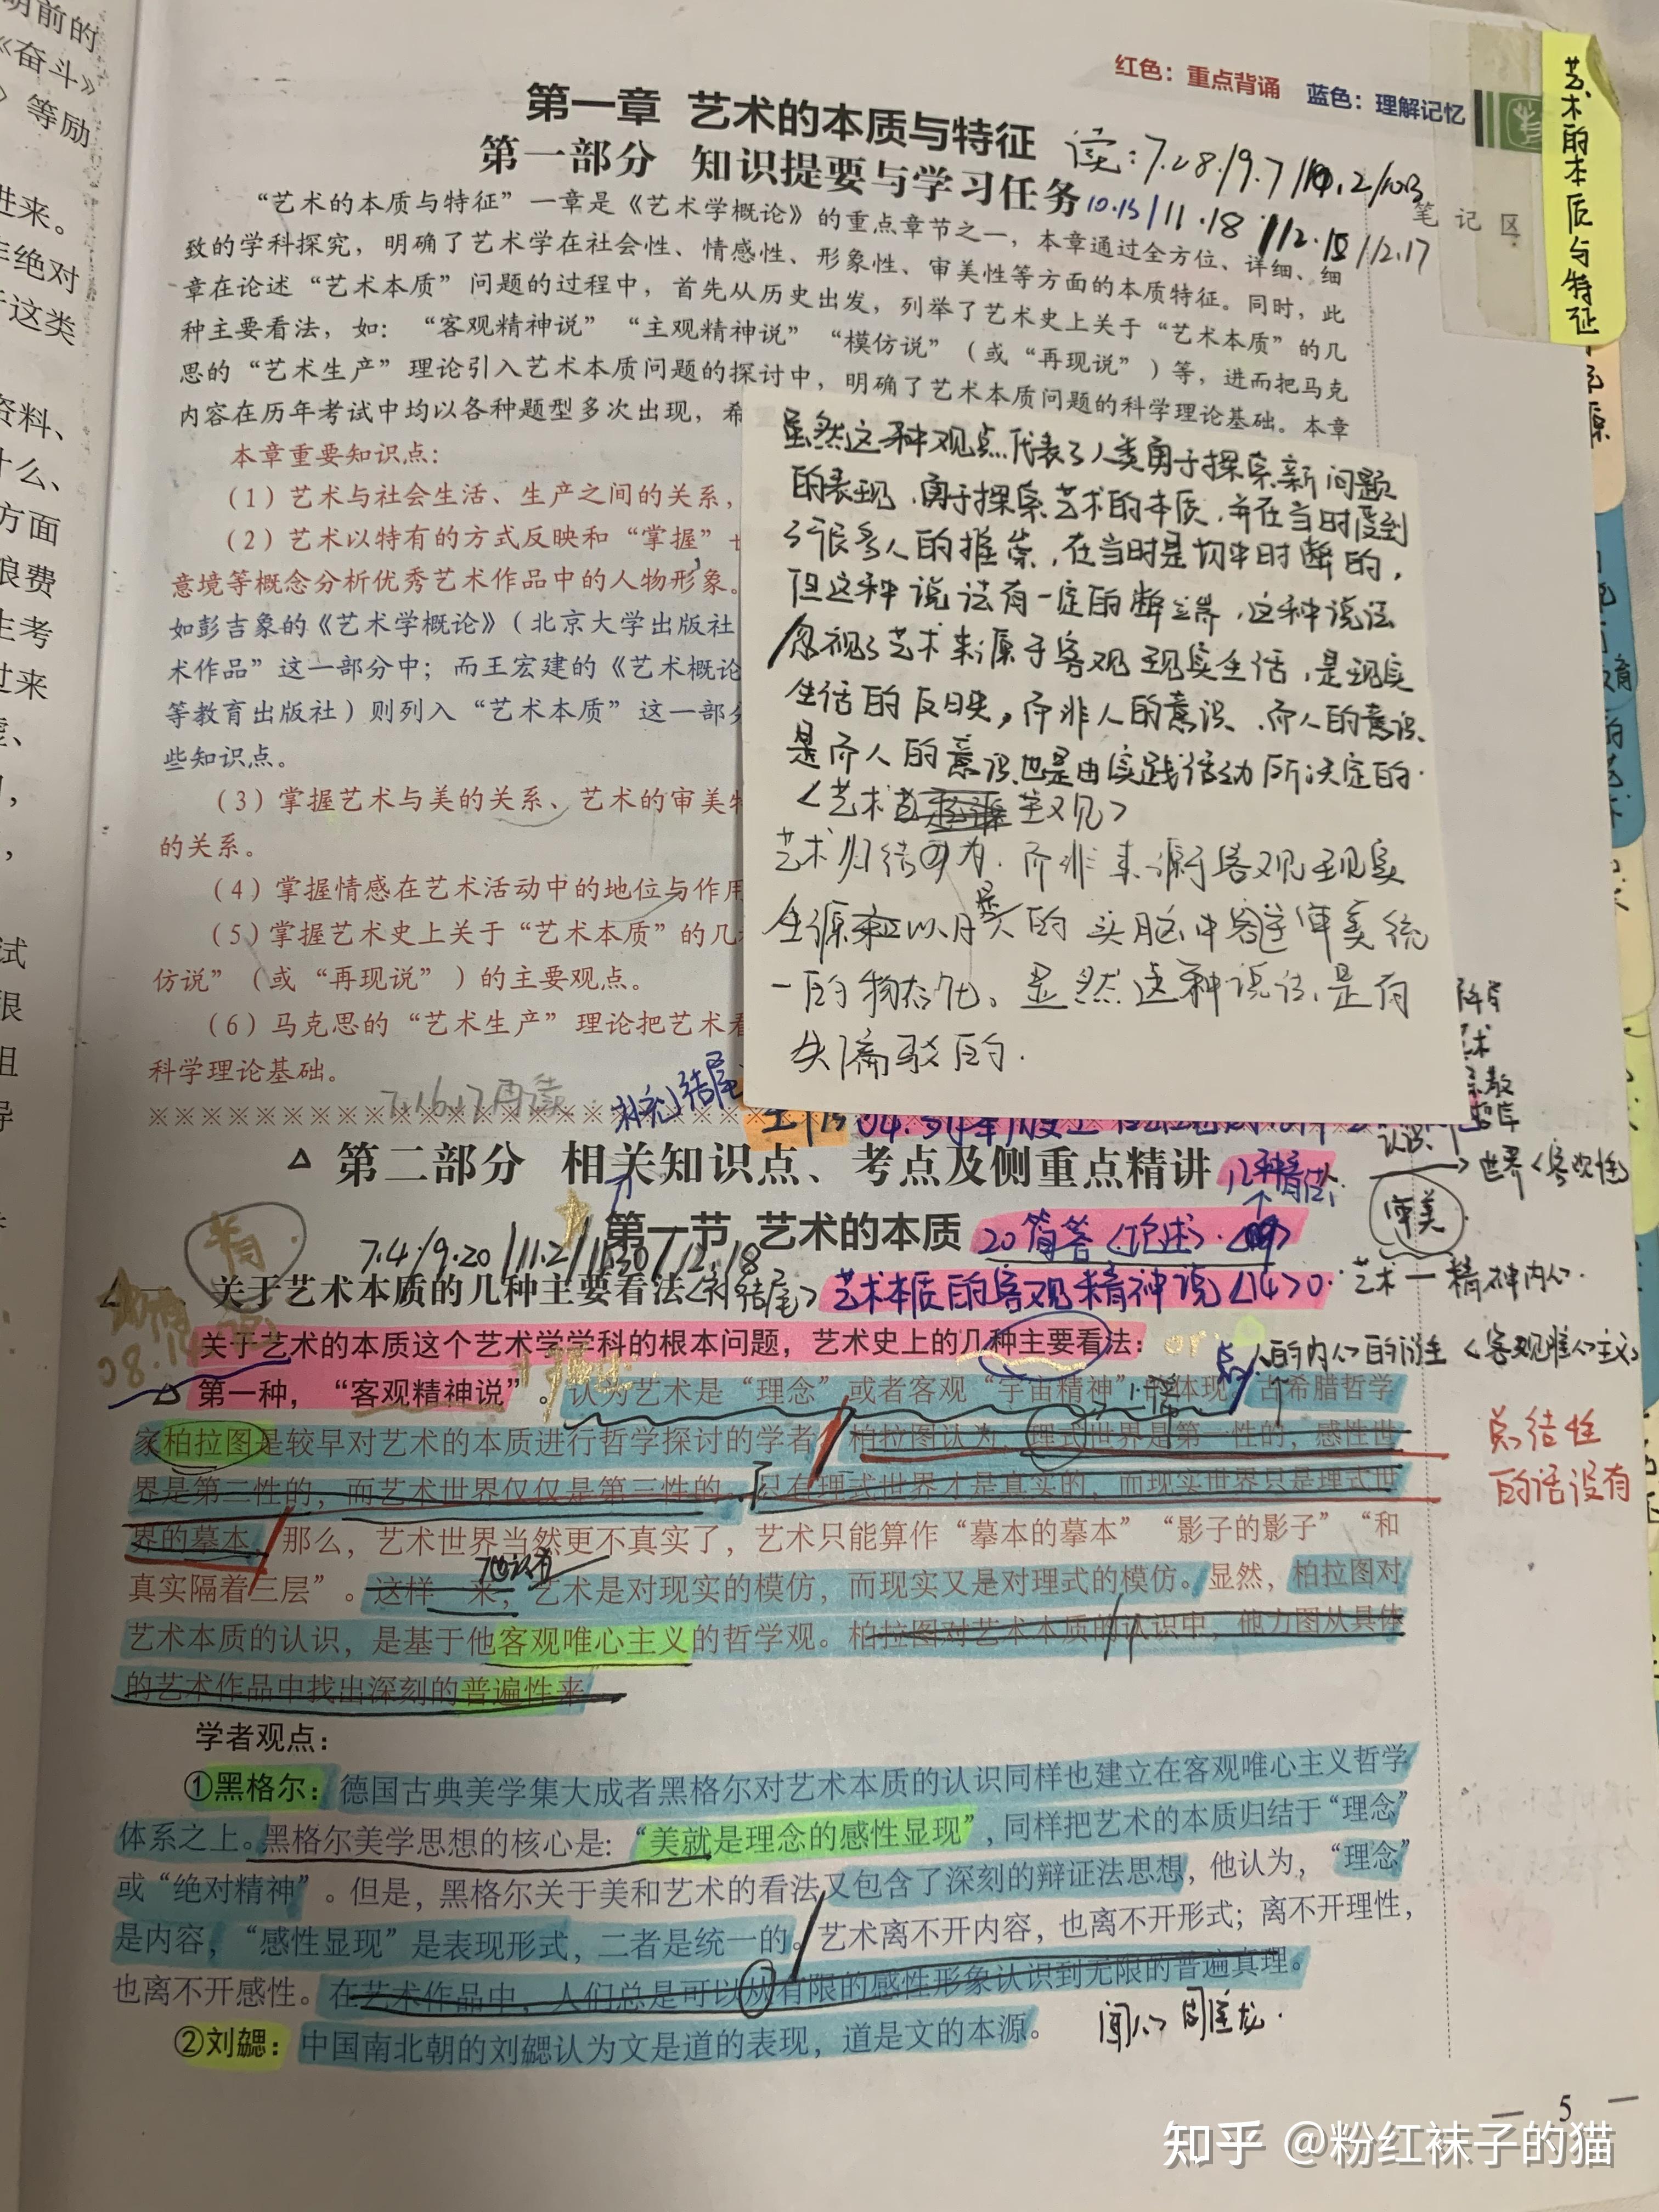 明前的
《奋斗》
》等励
进来。
非绝对
于这类
资料、
什么、
方面
浪费
生考
过来
试
很
组
导
红色：重点背诵 蓝色：理解记忆
艺术的本质与特征
第一章 艺术的本质与特征
读：7.28/9.7
第一部分 知识提要与学习任务
10.15/11.18/12.15/12.17
笔记区
“艺术的本质与特征”一章是《艺术学概论》的重点章节之一，本章通过全方位、详细、细
致的学科探究，明确了艺术学在社会性、情感性、形象性、审美性等方面的本质特征。同时，此
章在论述“艺术本质”问题的过程中，首先从历史出发，列举了艺术史上关于“艺术本质”的几
种主要看法，如：“客观精神说”“主观精神说”“模仿说”（或“再现说”）等，进而把马克
思的“艺术生产”理论引入艺术本质问题的探讨中，明确了艺术本质问题的科学理论基础。本章
内容在历年考试中均以各种题型多次出现，希
本章重要知识点：
（1）艺术与社会生活、生产之间的关系，
（2）艺术以特有的方式反映和“掌握”
意境等概念分析优秀艺术作品中的人物形象。
如彭吉象的《艺术学概论》（北京大学出版社
术作品”这一部分中；而王宏建的《艺术概论
等教育出版社）则列入“艺术本质”这一部分
些知识点。
（3）掌握艺术与美的关系、艺术的审美特
的关系。
（4）掌握情感在艺术活动中的地位与作用
（5）掌握艺术史上关于“艺术本质”的几
仿说”（或“再现说”）的主要观点。
（6）马克思的“艺术生产”理论把艺术看
科学理论基础。
虽然这种观点代表了人类勇于探索新问题
的表现，勇于探索艺术的本质，并在当时受到
了很多人的推崇，在当时是切中时弊的，
但这种说法有一定的弊端，这种说法
忽视了艺术来源于客观现实生活，是现实
生活的反映，而非人的意识、而人的意识
是而人的意识也是由实践活动所决定的.
艺术归结为.而非来源于客观现实
的头脑中客主审美统
一的物态化、显然这种说法是有
失偏驳的.
7.16.17再读
补充结尾
※※※※※※※※※※※※※※※※※※※※
第二部分 相关知识点、考点及侧重点精讲
世界<客观性>
审美
精
第一节 艺术的本质
20简答<论述>
7.4/9.20/11.2/11.30/12.18
一、关于艺术本质的几种主要看法<补结尾>
艺术本质的客观精神说<14>
艺术—精神内心.
08.14
关于艺术的本质这个艺术学学科的根本问题，艺术史上的几种主要看法：
or
人的内心的衍生<客观唯心主义>
第一种，“客观精神说”。认为艺术是“理念”或者客观“宇宙精神”的体现，古希腊哲学
家柏拉图是较早对艺术的本质进行哲学探讨的学者。柏拉图认为，理式世界是第一性的，感性世
总结性
界是第二性的，而艺术世界仅仅是第三性的。只有理式世界才是真实的，而现实世界只是理式世
的话没有
界的摹本，那么，艺术世界当然更不真实了，艺术只能算作“摹本的摹本”“影子的影子”“和
他认为
真实隔着三层”。这样一来，艺术是对现实的模仿，而现实又是对理式的模仿。显然，柏拉图对
艺术本质的认识，是基于他客观唯心主义的哲学观。柏拉图对艺术本质的认识中，他力图从具体
的艺术作品中找出深刻的普遍性来
学者观点：
①黑格尔：德国古典美学集大成者黑格尔对艺术本质的认识同样也建立在客观唯心主义哲学
体系之上。黑格尔美学思想的核心是:“美就是理念的感性显现”，同样把艺术的本质归结于“理念”
或“绝对精神”。但是，黑格尔关于美和艺术的看法又包含了深刻的辩证法思想，他认为，“理念”
是内容，“感性显现”是表现形式，二者是统一的。艺术离不开内容，也离不开形式；离不开理性，
也离不开感性。在艺术作品中，人们总是可以从有限的感性形象认识到无限的普遍真理。
②刘勰：中国南北朝的刘勰认为文是道的表现，道是文的本源。
— 5 —
知乎 @粉红袜子的猫